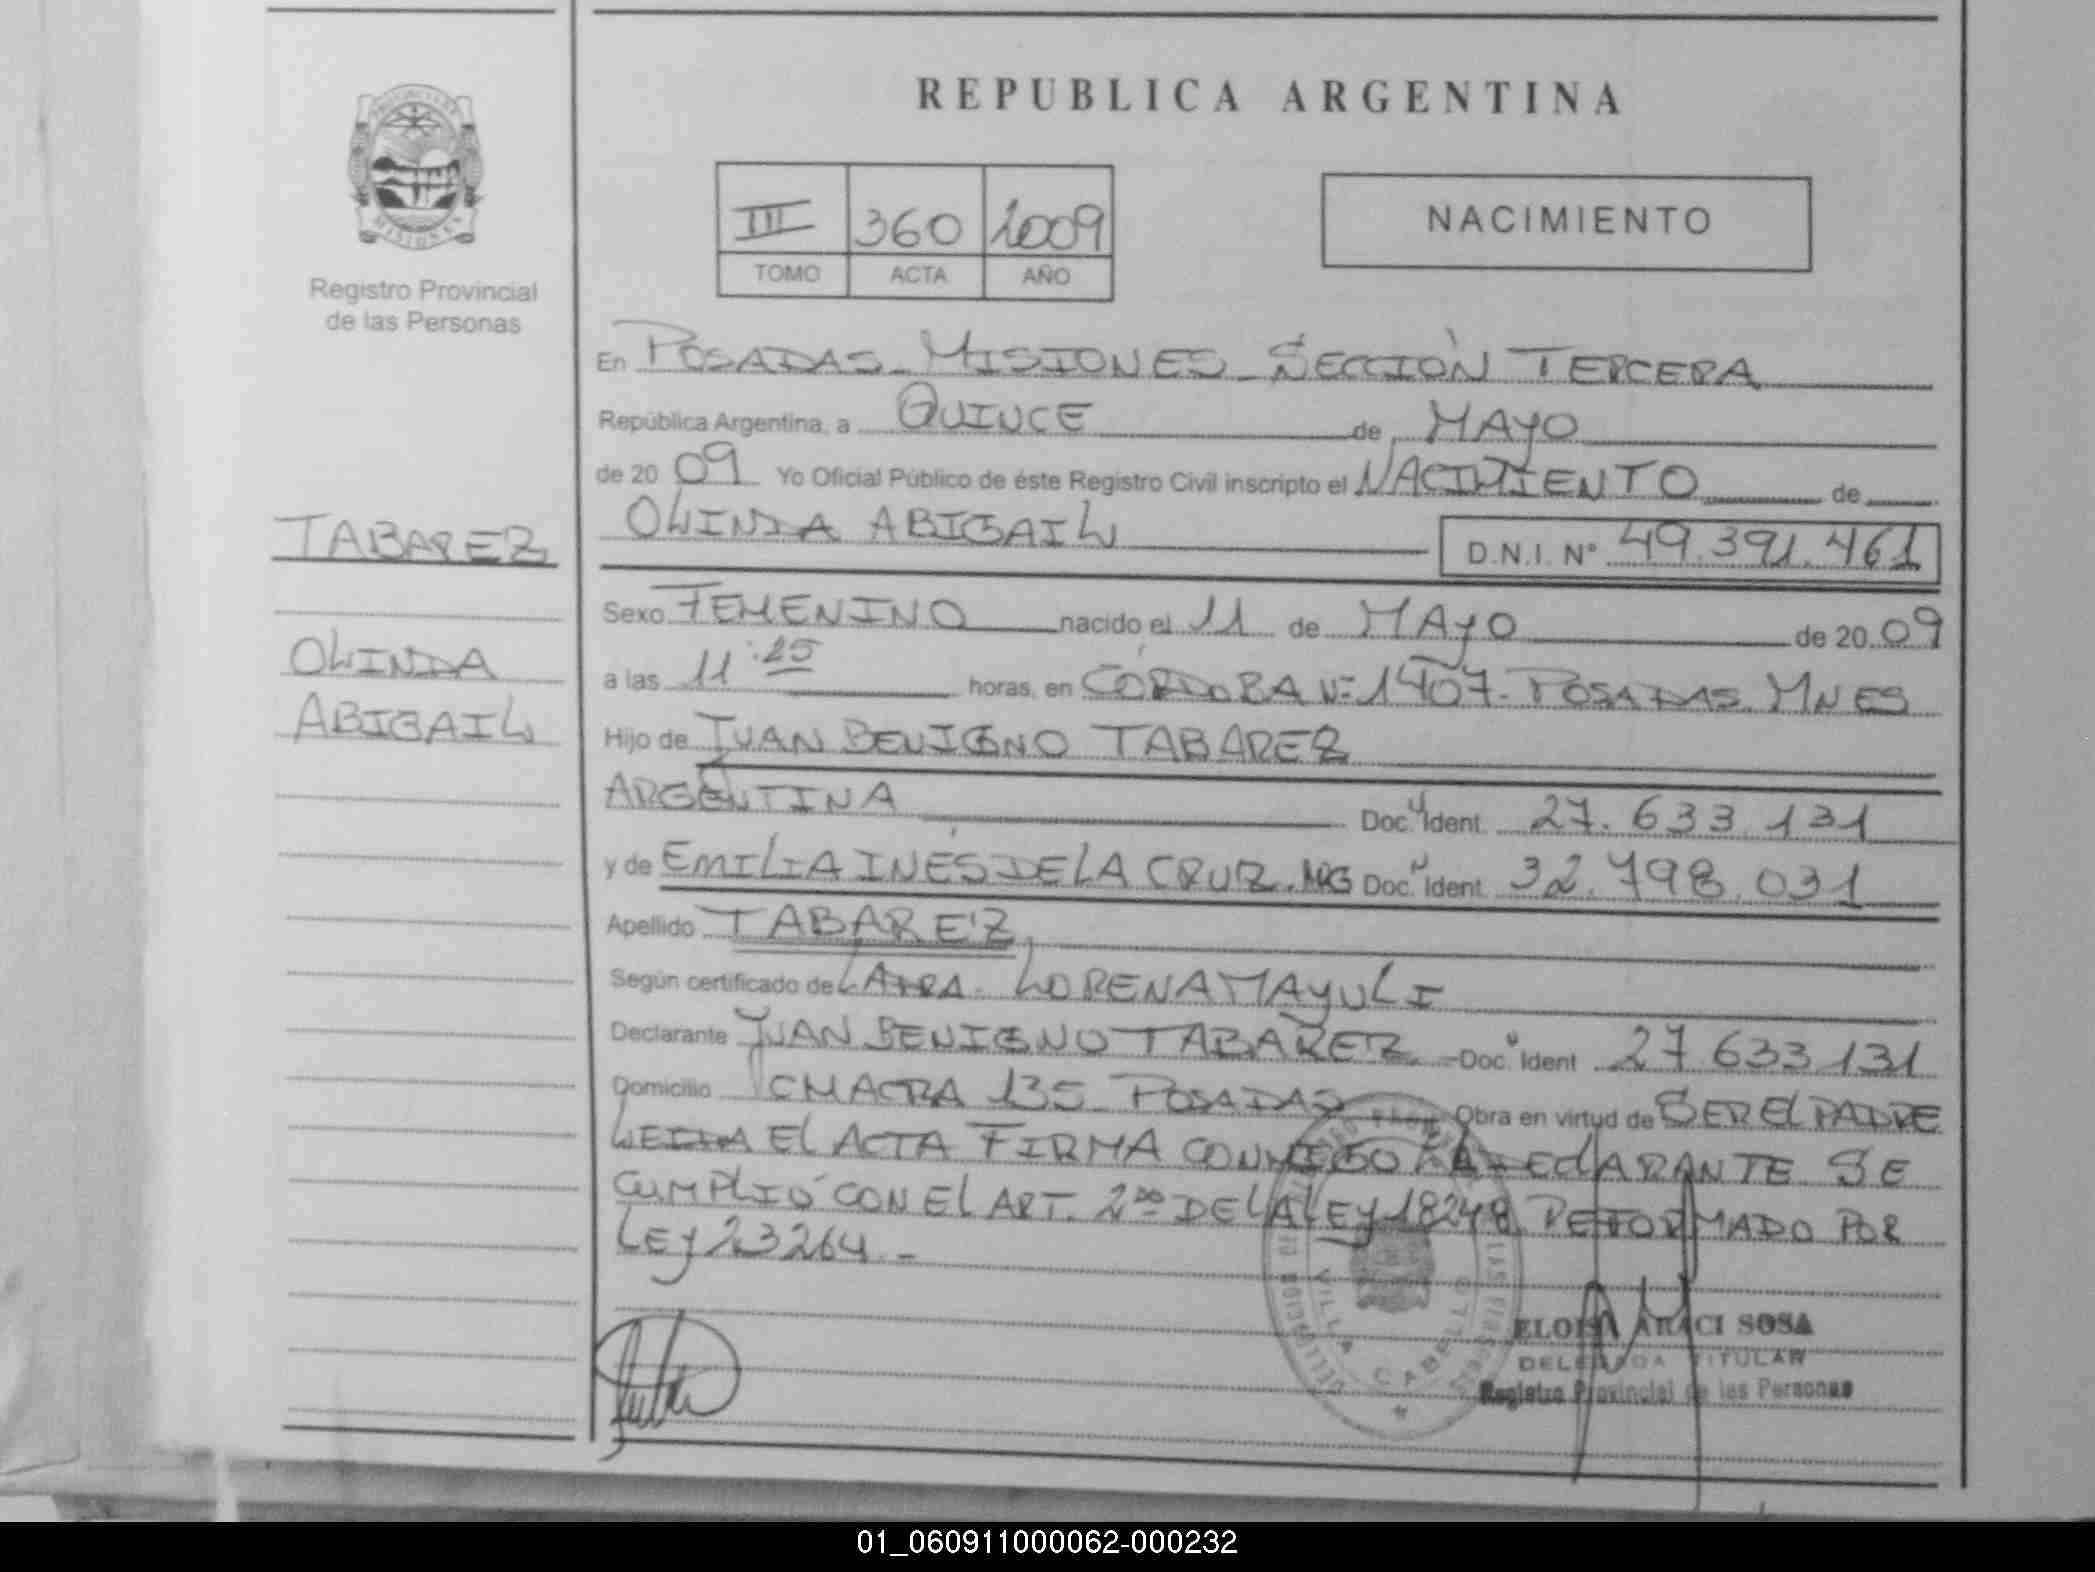 REPUBLICA ARGENTINA
PROVINCIA DE
MISIONES
Registro Provincial
de las Personas
III 360 2009
TOMO ACTA AÑO
NACIMIENTO
En POSADAS - MISIONES - SECCIÓN TERCERA
República Argentina, a QUINCE de MAYO
de 2009 Yo Oficial Público de éste Registro Civil inscripto el NACIMIENTO de
OLINDA ABIGAIL D.N.I. N° 49.391.461
TABAREZ
OLINDA
ABIGAIL
Sexo FEMENINO nacido el 11 de MAYO de 2009
a las 11:25 horas, en CÓRDOBA Nº 1407 - POSADAS MNES
Hijo de JUAN BENIGNO TABAREZ
ARGENTINA Doc. Ident. 27.633.131
y de EMILIA INÉS DE LA CRUZ. ARG Doc. Ident. 32.798.031
Apellido TABAREZ
Según certificado de LORENA MAYULI
Declarante JUAN BENIGNO TABAREZ Doc. Ident. 27.633.131
Domicilio CHACRA 135 POSADAS Obra en virtud de SER EL PADRE
LEIDA EL ACTA FIRMA CONMIGO DECLARANTE SE
CUMPLIÓ CON EL ART. 2do DE LA LEY 18248 REFORMADO POR
LEY 23264 -
VILLA CABELLO
ELOISA ARACI SOSA
DELEGADA TITULAR
Registro Provincial de las Personas
01_060911000062-000232